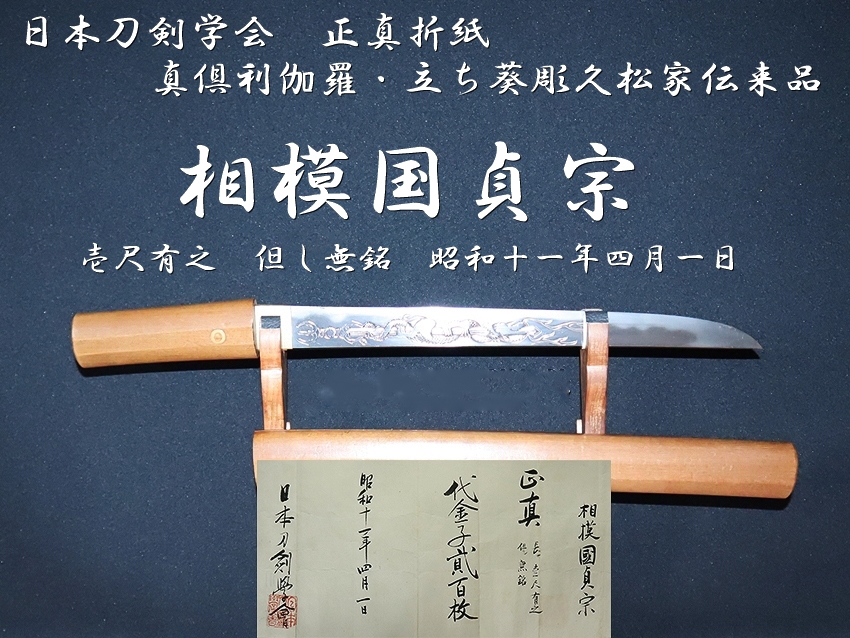 日本刀剣学会 正真折紙
真倶利伽羅・立ち葵彫久松家伝来品
相模国貞宗
壱尺有之 但し無銘 昭和十一年四月一日
相模國貞宗
正真
長壱尺有之
但無銘
代金子貳百枚
昭和十一年四月一日
日本刀剣學會